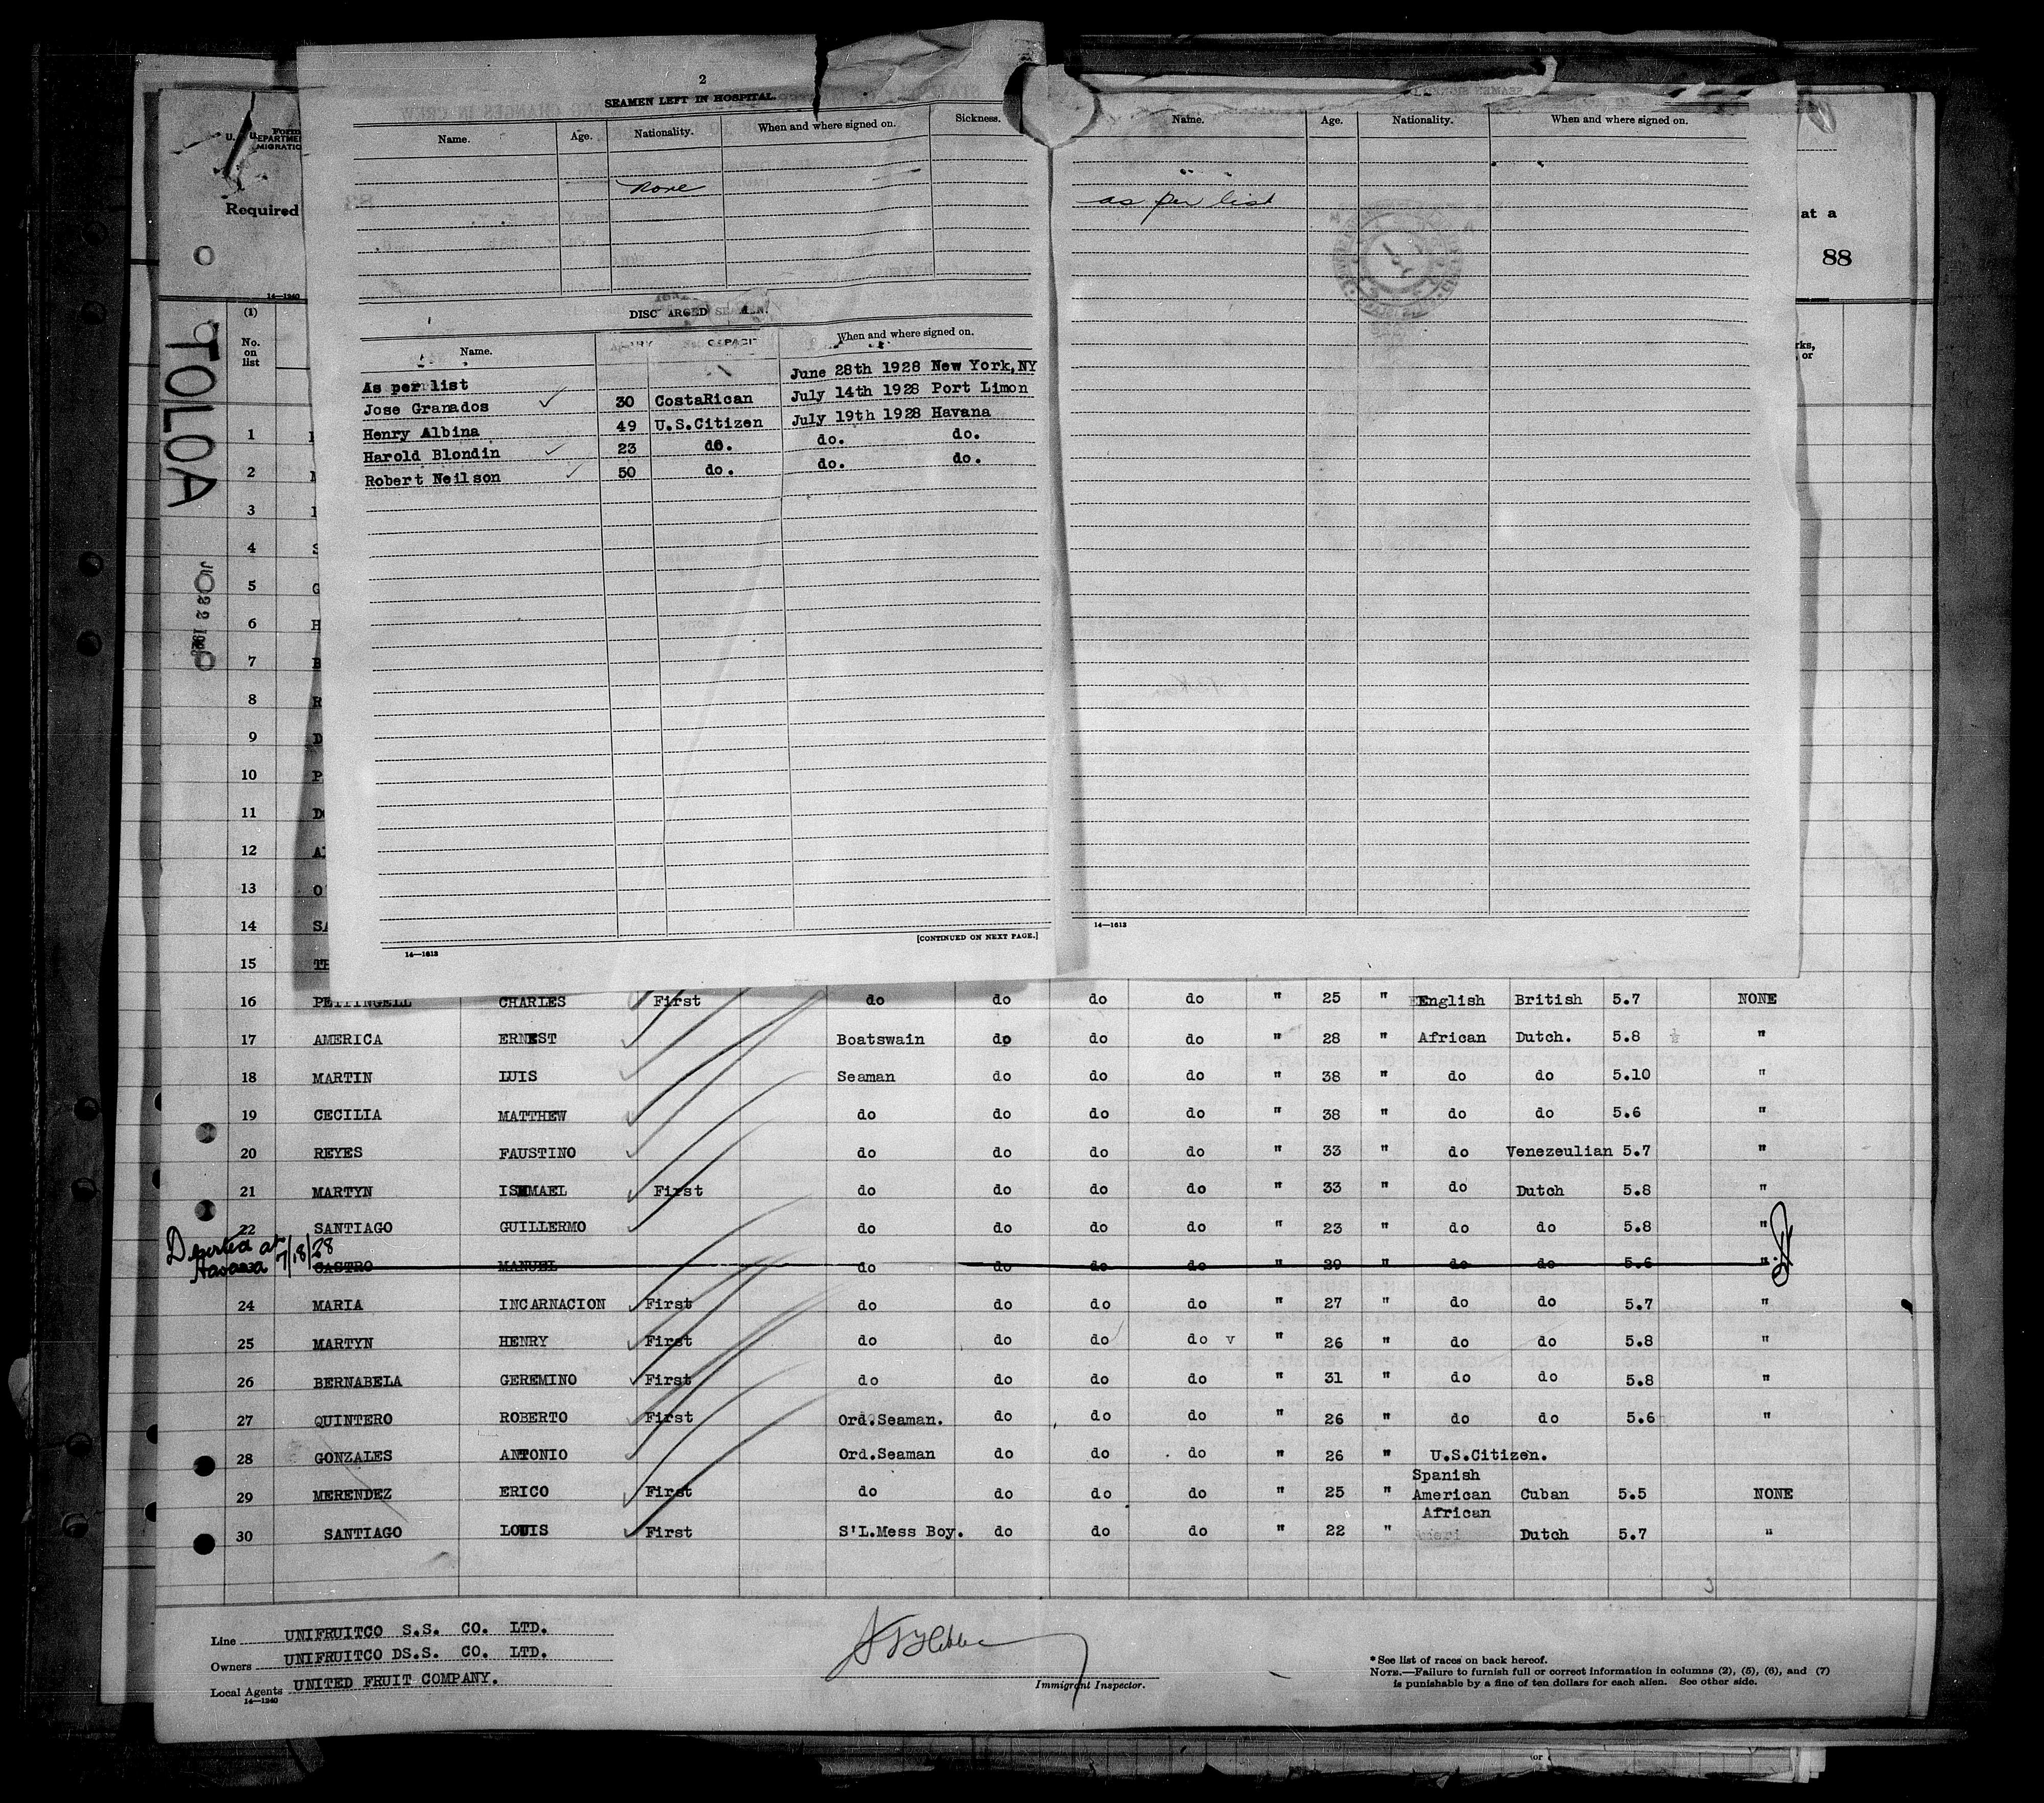 2
SEAMEN LEFT IN HOSPITAL.
Name. Age. Nationality. When and where signed on. Sickness.
none
DISC ARGED SEAMEN.
Name. When and where signed on.
As per list June 28th 1928 New York,NY
Jose Granados 30 CostaRican July 14th 1928 Port Limon
Henry Albina 49 U.S.Citizen July 19th 1928 Havana
Harold Blondin 23 do. do. do.
Robert Neilson 50 do. do. do.
[CONTINUED ON NEXT PAGE.]
14—1613
Name. Age. Nationality. When and where signed on.
as per list
14—1613
Form
U.
MIGRATIO
Required
at a
88
14—1240
TOLOA
(1)
No.
on
list
rks,
or
1
2
3
4 S
5 G
6 H
7 B
8 R
9 D
10 P
11 DO
12 AL
13 O
14 SA
15 TH
16 PETTINGELL CHARLES First do do do do " 25 " English British 5.7 NONE
17 AMERICA ERNEST Boatswain do do do " 28 " African Dutch. 5.8 ½ "
18 MARTIN LUIS Seaman do do do " 38 " do do 5.10 "
19 CECILIA MATTHEW do do do do " 38 " do do 5.6 "
20 REYES FAUSTINO do do do do " 33 " do Venezeulian 5.7 "
21 MARTYN ISMMAEL First do do do do " 33 " do Dutch 5.8 "
22 SANTIAGO GUILLERMO do do do do " 23 " do do 5.8 "
Deserted at
Havana 7/18/28
CASTRO MANUEL do do do do " 29 " do do 5.6 "
24 MARIA INCARNACION First do do do do " 27 " do do 5.7 "
25 MARTYN HENRY First do do do do v " 26 " do do 5.8 "
26 BERNABELA GEREMINO First do do do do " 31 " do do 5.8 "
27 QUINTERO ROBERTO First Ord.Seaman. do do do " 26 " do do 5.6 "
28 GONZALES ANTONIO Ord.Seaman do do do " 26 " U.S.Citizen.
29 MERENDEZ ERICO First do do do do " 25 " Spanish American Cuban 5.5 NONE
30 SANTIAGO LOUIS First S'L.Mess Boy. do do do " 22 " African Dutch 5.7 "
Line UNIFRUITCO S.S. CO. LTD.
Owners UNIFRUITCO DS.S. CO. LTD.
Local Agents UNITED FRUIT COMPANY.
14—1240
Immigrant Inspector.
*See list of races on back hereof.
NOTE.—Failure to furnish full or correct information in columns (2), (5), (6), and (7)
is punishable by a fine of ten dollars for each alien. See other side.